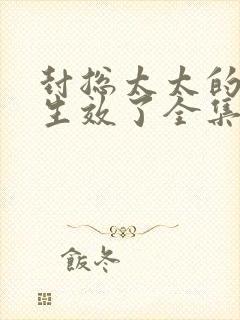 封总太太的
生效了全集
飯冬